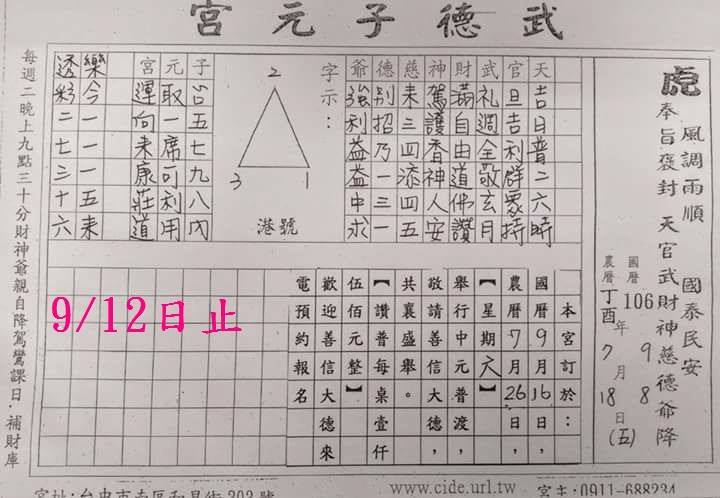 武德子元宮
虎
風調雨順 國泰民安
奉旨褒封 天官武財神慈德爺降
國曆 106年 9月 8日
農曆丁酉年 7月 18日(五)
天吉日普二六時
官旦吉利群眾持
武礼週全敬玄月
財滿自由道佛讚
神駕護香神人安
慈未三四添四五
德別招乃一三一
爺強利益益中求
字示：
2
3
1
港號
子五七九八內
元取一席可利用
宮運向未康莊道
樂今一一一五未
透彩二七三十六
本宮訂於：
國曆9月16日，
農曆7月26日，
【星期六】
舉行中元普渡，
敬請善信大德，
共襄盛舉。
【讚普每桌壹仟
伍佰元整】
歡迎善信大德來
電預約報名
9/12日止
每週二晚上九點三十分財神爺親自降駕鸞課日．補財庫
www.cide.url.tw
宮址:台中市南區和昌街203號
宮主:0911-688234